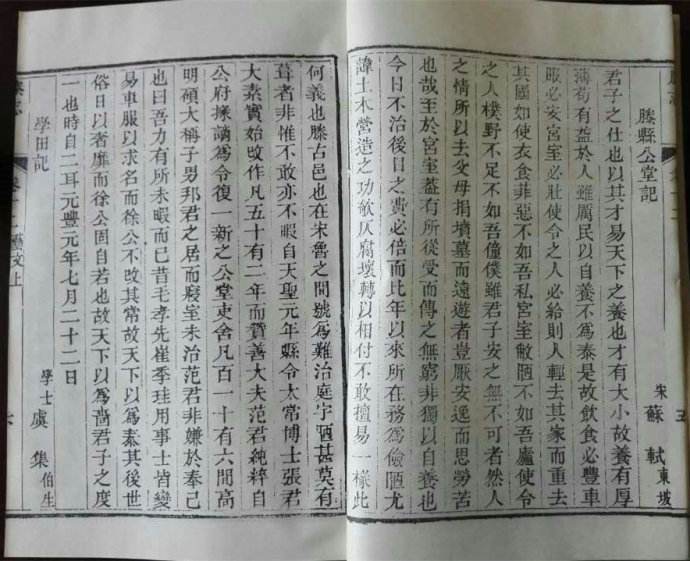 五
滕縣公堂記
宋 蘇軾 東坡
君子之仕也以其才易天下之養也才有大小故養有厚
薄苟有益於人雖厲民以自養不為泰是故飲食必豐車
必安宮室必壯使令之人必給則人輕去其家而重去
其國如使衣食菲惡不如吾私宮室敝陋不如吾廬使令
之人樸野不足不如吾僮僕雖君子安之無不可者然人
之情所以去父母捐墳墓而遠遊者豈厭安逸而思勞苦
也哉至於宮室蓋有所從受而傳之無窮非獨以自養也
今日不治後日之費必倍而比年以來所在務為儉陋尤
諱土木營造之功欹仄腐壞轉以相付不敢擅易一椽此
何義也滕古邑也在宋魯之間號為難治庭宇陋甚莫有
葺者非惟不敢亦不暇自天聖元年縣令太常博士張君
大素實始改作凡五十有二年而贊善大夫范君純粹自
公府掾謫為令復一新之公堂吏舍凡百一十有六間高
明碩大稱子男邦君之居而寢室未治范君非嫌於奉己
也曰吾力有所未暇而已昔毛孝先崔季珪用事士皆變
易車服以求名而徐公不改其常故天下以為泰其後世
俗日以奢靡而徐公固自若也故天下以為嗇君子之度
一也時自二耳元豐元年七月二十二日
學田記
學士 虞集 伯生
滕志 藝文上